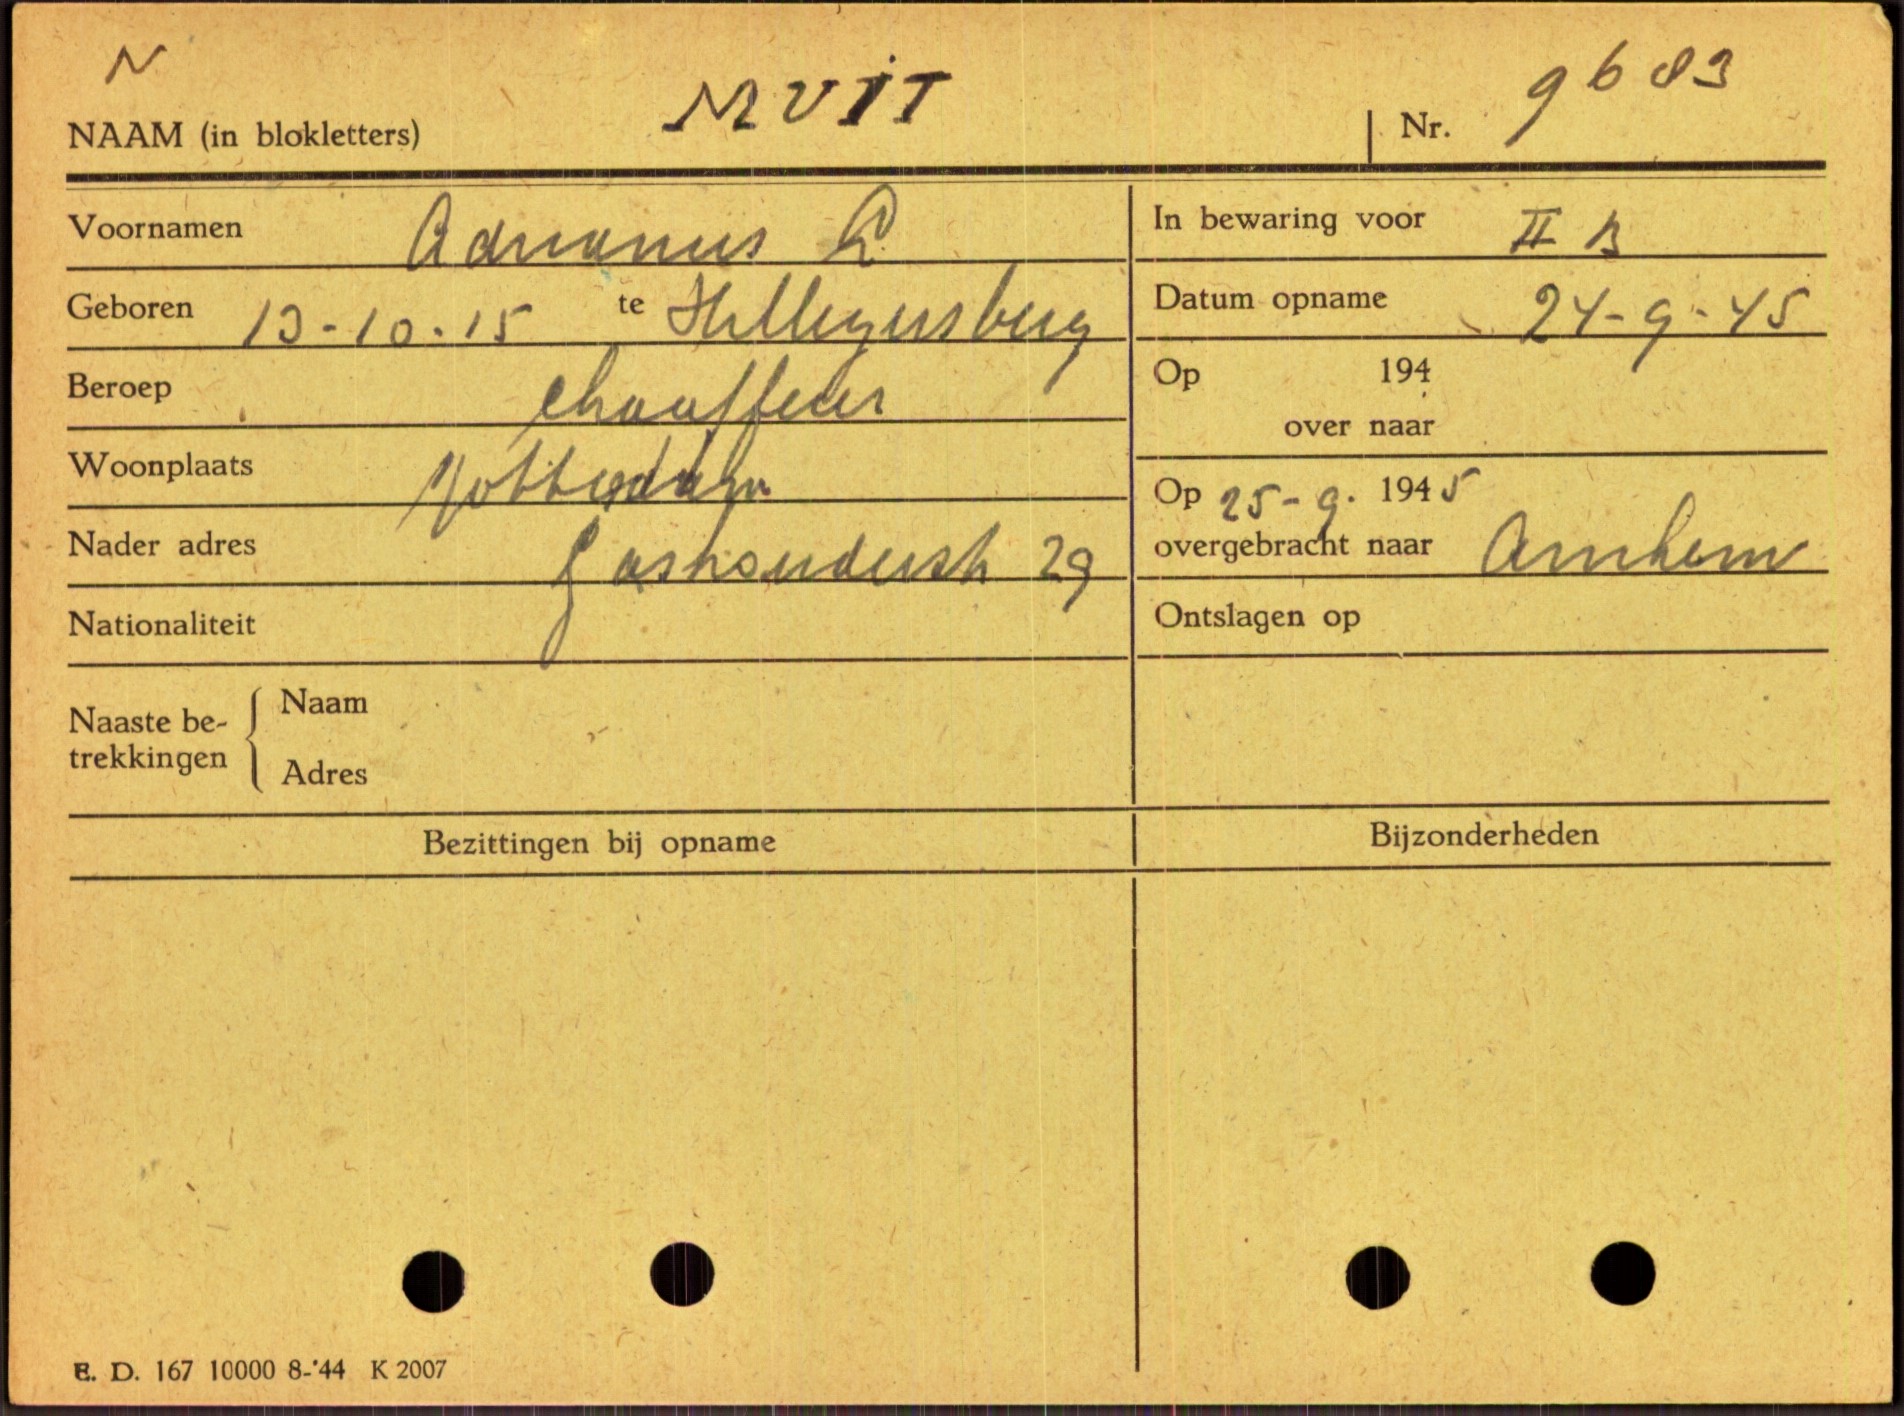 N
NAAM (in blokletters) MUIT Nr. 9683
Voornamen Adrianus L
In bewaring voor II B
Geboren 13-10-15 te Hillegersberg
Datum opname 24-9-45
Beroep chauffeur
Op 194
over naar
Woonplaats Rotterdam
Op 25-9. 1945
overgebracht naar Arnhem
Nader adres 29
Nationaliteit
Ontslagen op
Naaste be-
trekkingen
Naam
Adres
Bezittingen bij opname
Bijzonderheden
E. D. 167 10000 8-'44 K 2007